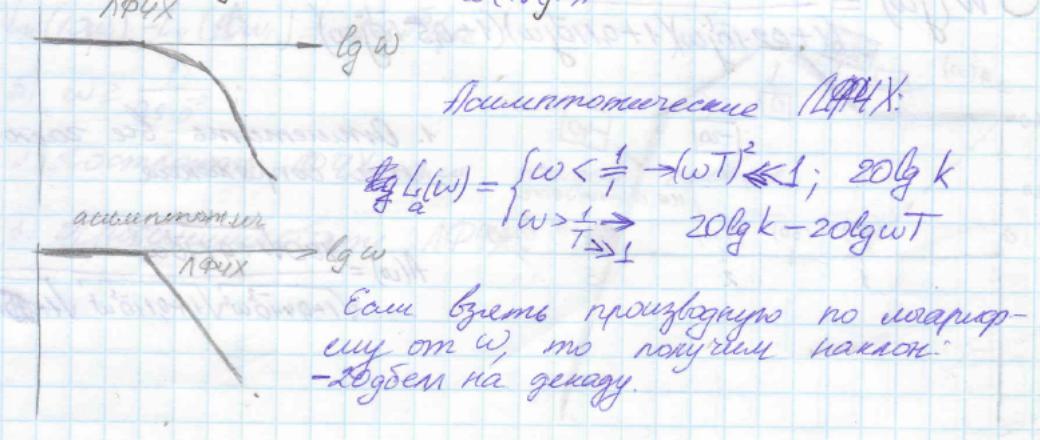 ЛФЧХ
lg ω
Асимптотические ЛАЧХ:
Lₐ(ω) = { ω < 1/T → (ωT)² ≪ 1; 20 lg k
ω > 1/T → ≫ 1 20 lg k − 20 lg ωT
асимптотич
ЛФЧХ
lg ω
Если взять производную по логариф-
му от ω, то получим наклон:
−20дбелл на декаду.